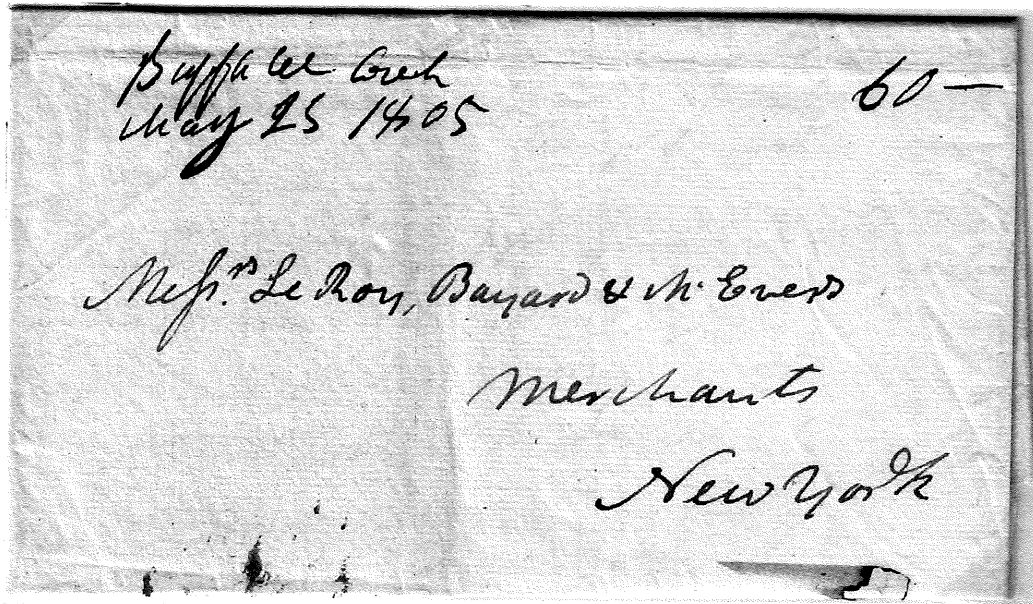 Buffaloe Creek 60—
May 25 1805
Messrs. Le Roy, Bayard & Mc Evers
Merchants
New York